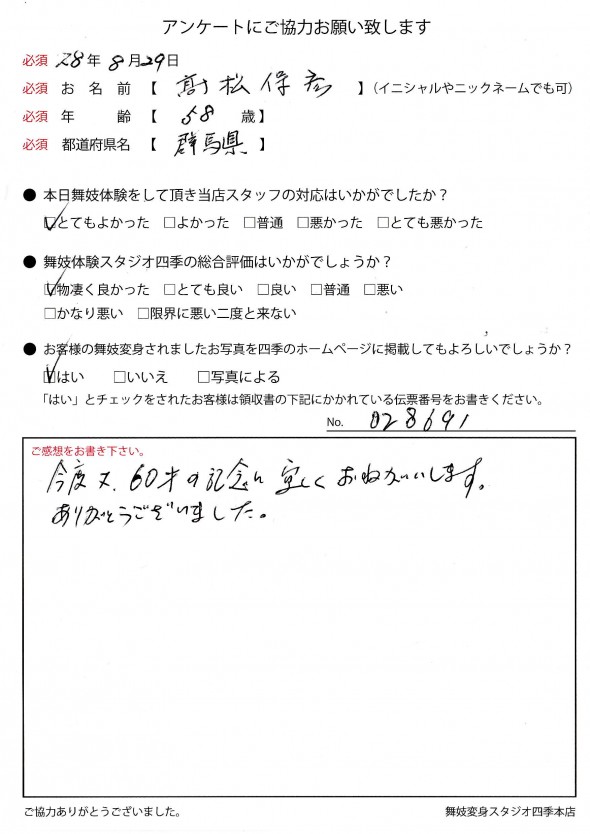 アンケートにご協力お願い致します
必須 28年 8月29日
必須 お名前 【 髙松保彦 】（イニシャルやニックネームでも可）
必須 年齢 【 58 歳】
必須 都道府県名 【 群馬県 】
● 本日舞妓体験をして頂き当店スタッフの対応はいかがでしたか？
☑とてもよかった □よかった □普通 □悪かった □とても悪かった
● 舞妓体験スタジオ四季の総合評価はいかがでしょうか？
☑物凄く良かった □とても良い □良い □普通 □悪い
□かなり悪い □限界に悪い二度と来ない
● お客様の舞妓変身されましたお写真を四季のホームページに掲載してもよろしいでしょうか？
☑はい □いいえ □写真による
「はい」とチェックをされたお客様は領収書の下記にかかれている伝票番号をお書きください。
No. 028691
ご感想をお書き下さい。
今度は、60才の記念に宜しくおねがいします。
ありがとうございました。
ご協力ありがとうございました。 舞妓変身スタジオ四季本店